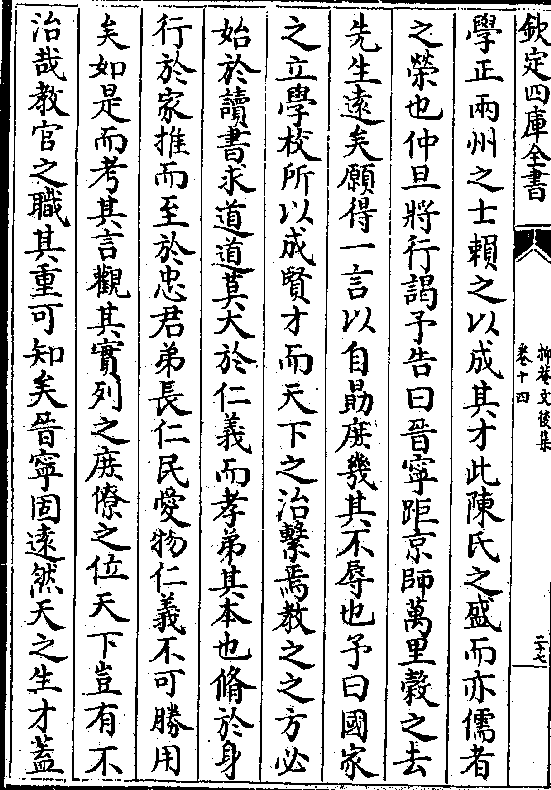 欽定四庫全書
抑菴文後集
卷十四
二十七
學正兩州之士賴之以成其才此陳氏之盛而亦儒者
之榮也仲旦將行謁予告曰晉寧距京師萬里穀之去
先生逺矣願得一言以自勗庶幾其不辱也予曰國家
之立學校所以成賢才而天下之治繫焉教之之方必
始於讀書求道道莫大於仁義而孝弟其本也脩於身
行於家推而至於忠君弟長仁民愛物仁義不可勝用
矣如是而考其言觀其實列之庶僚之位天下豈有不
治哉教官之職其重可知矣晉寧固逺然天之生才葢